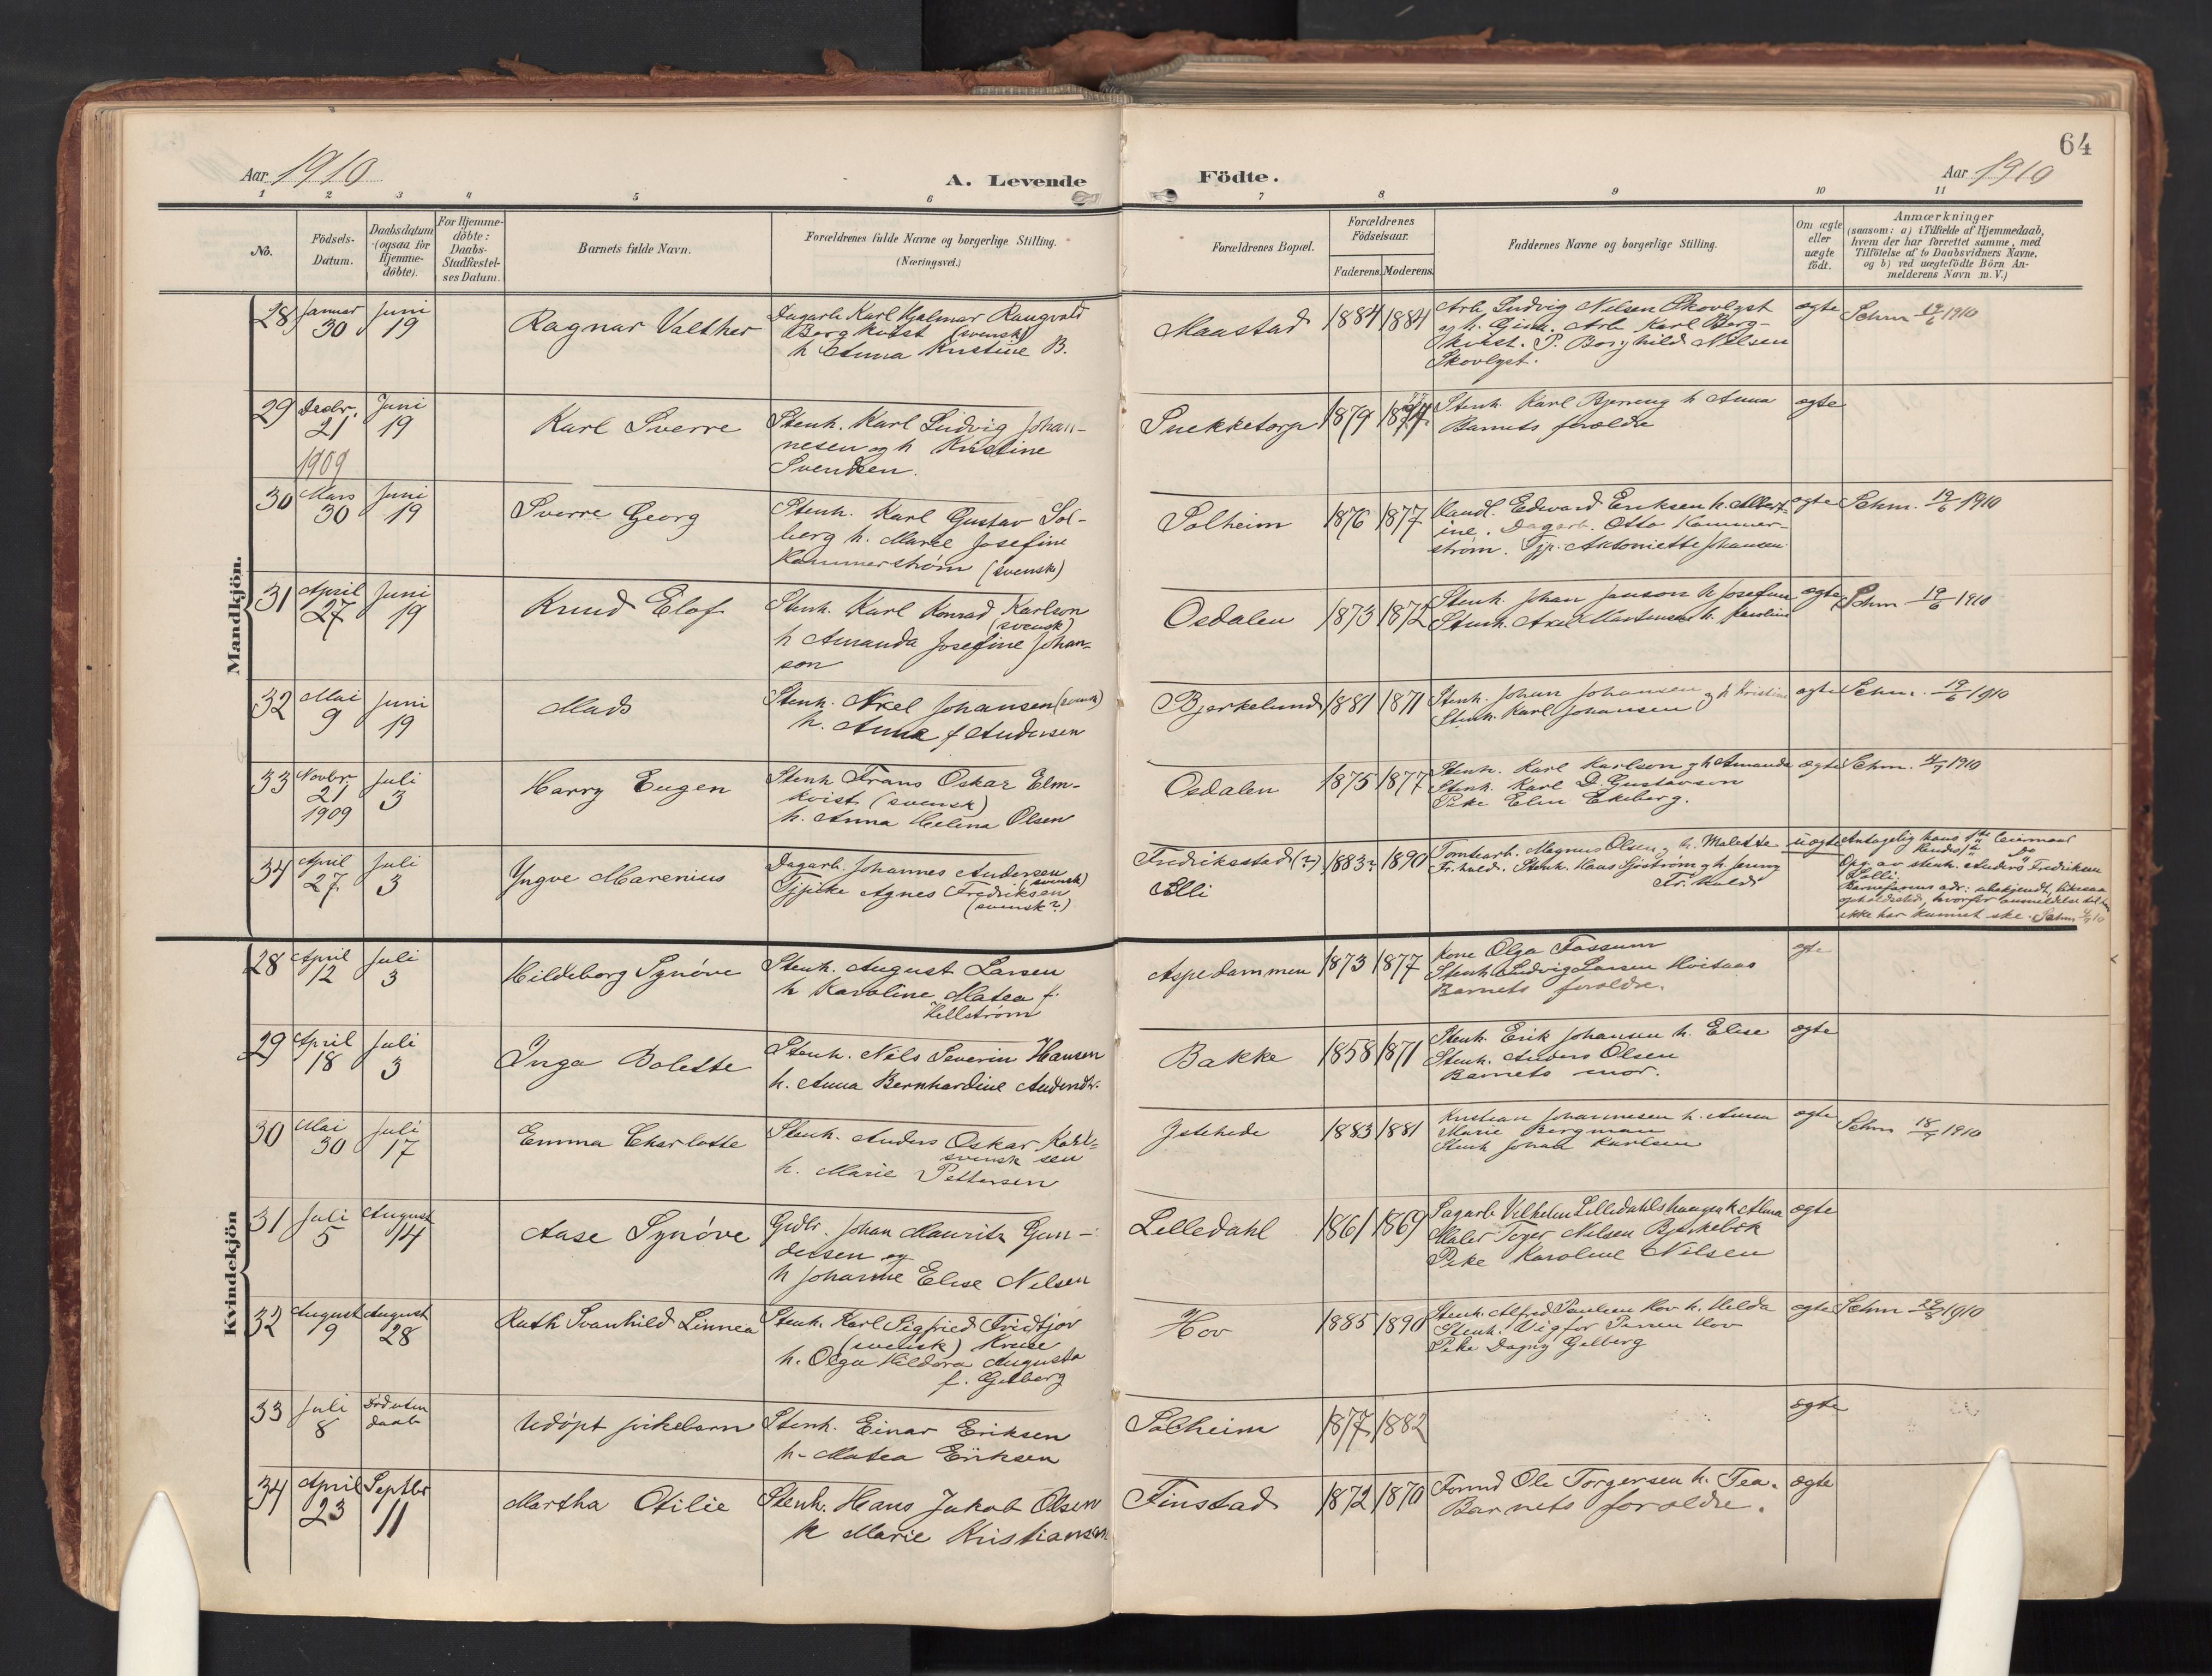 64
Aar 1910
A. Levende
Födte.
Aar 1910
1 2 3 4 5 6 7 8 9 10 11
No.
Födsels-
Datum.
Daabsdatum
(ogsaa for
Hjemme-
döbte).
For Hjemme-
döbte:
Daabs-
Stadfæstel-
ses Datum.
Barnets fulde Navn.
Forældrenes fulde Navne og borgerlige Stilling.
(Næringsvei.)
Forældrenes Bopæl.
Forældrenes
Födselsaar.
Faderens. Moderens.
Faddernes Navne og borgerlige Stilling.
Om ægte
eller
uægte
födt.
Anmærkninger
(saasom: a) i Tilfælde af Hjemmedaab,
hvem der har forrettet samme, med
Tilföielse af to Daabsvidners Navne,
og b) ved uægtefödte Börn An-
melderens Navn m. V.)
Mandkjön.
28
Januar
30
Juni
19
Ragnar Valther
Dagarb. Karl Hjalmar Rangvald
Bergkvist (svensk)
h Anna Kristine B.
Maastad
1884
1884
Arb Ludvig Nilsen Skovlyst
og h. Gina. Arb Karl Berg-
kvist. P. Borghild Nilsen
Skovlyst.
ægte
Schm 19/6 1910
29
Decbr.
21
1909
Juni
19
Karl Sverre
Stenh. Karl Ludvig Johan-
nesen og h Kristine
Svendsen.
Snekketorp
1879
Stenh. Karl Bjerneng h Anna
Barnets foreldre
ægte
30
Mars
30
Juni
19
Sverre Georg
Stenh. Karl Gustav Sol-
berg h. Marie Josefine
Hammerstrøm (svensk)
Solheim
1876
1877
Handl. Edward Eriksen h. Albert-
ine. Dagarb. Otto Hammer-
strøm. Tjp. Antoniette Johansen
ægte
Schm. 19/6 1910
31
April
27
Juni
19
Knud Elof
Stenh. Karl Konrad Karlson
(svensk)
h Amanda Josefine Johan-
son
Osdalen
1873
1872
Stenh. Johan Janson h Josefine
Stenh. Axel Martensen h. Karoline
ægte
Schm 19/6 1910
32
Mai
9
Juni
19
Mads
Stenh. Axel Johansen (svensk)
h. Anna f Andersen
Bjerkelund
1881
1871
Stenh. Johan Johansen og h Kristine
Stenh. Karl Johansen
ægte
Schm. 19/6 1910
33
Novbr.
21
1909
Juli
3
Harry Eugen
Stenh Frans Oskar Elm-
kvist (svensk)
h. Anna Helena Olsen
Osdalen
1875
1877
Stenh. Karl Karlson og h Amanda
Stenh. Karl D. Gustavson
Pike Elin Ekeberg.
ægte
Schm. 4/7 1910
34
April
27
Juli
3
Yngve Marenius
Dagarb. Johannes Andersen
(svensk)
Tjpike Agnes Fredriksen
(svensk?)
Fredrikstad (?)
Elli
1883?
1890
Tomtearb. Magnus Olsen og h. Maletta
Fr.hald. Stenh. Hans Sjøstrøm og h. Jenny
Fr. hald
uægte
Antagelig hans 1ste leiermaal
hendes 1ste Do
Opg. av stenh. Anders Fredriksen
Barnefarens adr: ubekjendt, likesaa
opholdssted, hvorfor anmeldelse til ham
ikke har kunnet ske. Schm 4/7 10
Kvindekjön
28
April
12
Juli
3
Hildeborg Synöve
Stenh. August Larsen
h Karoline Matea f.
Hellström
Aspedammen
1873
1877
Kone Olga Fossum
Stenh. Ludvig Larsen Hvitaas
Barnets foreldre.
ægte
29
April
18
Juli
3
Inga Bolette
Stenh. Nils Severin Hansen
h. Anna Bernhardine Andersdtr.
Bakke
1858
1871
Stenh. Erik Johansen h. Elise
Stenh. Anders Olsen
Barnets mor.
ægte
30
Mai
30
Juli
17
Emma Charlotte
Stenh. Anders Oskar Karl-
svensk sen
h. Marie Pettersen
Istehede
1883
1881
Kristian Johannesen h. Anna
Marie Bergman
Stenh Johan Karlsen
ægte
Schm 18/7 1910
31
Juli
5
August
14
Aase Synöve
Grdbr. Johan Mauritz Gun-
dersen og
h Johanne Elise Nilsen
Lilledahl
1861
1869
Sagarb Vilhelm Lilledahlshaugen h Alma
Maler Torger Nilsen Bjerkebæk
Pike Karoline Nilsen
ægte
32
August
9
August
28
Ruth Svanhild Linnea
Stenh. Karl Sigfried Fridtjov
(svensk) Kruse
h. Olga Hildora Augusta
f. Gelberg
Hov
1885
1890
Stenh. Alfred Paulsen Hov h. Hilda
Stenh. Vigfor Hov
Pike Dagny Gelberg
ægte
Schm 29/8 1910
33
Juli
8
Död uten
daab
Udöpt pikebarn
Stenh. Einar Eriksen
h. Matea Eriksen
Solheim
1877
1882
ægte
34
April
23
Septbr
11
Martha Otilie
Stenh. Hans Jakob Olsen
h Marie Kristiansen
Finstad
1872
1870
Formd Ole Torgersen h. Tea.
Barnets foreldre.
ægte